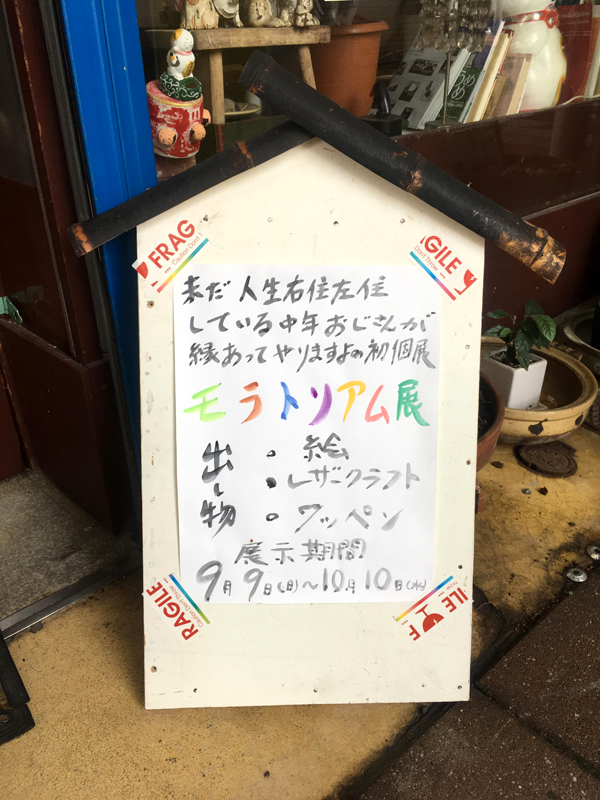 FRAG
Caution Don't T
GILE
Don't Throw
未だ人生右住左住
している中年おじさんが
縁あってやりますよの初個展
モラトリアム展
出し物
・絵
・レザークラフト
・ワッペン
展示期間
9月9日(日)〜10月10日(水)
RAGILE
Caution Don't Throw
ILE
F